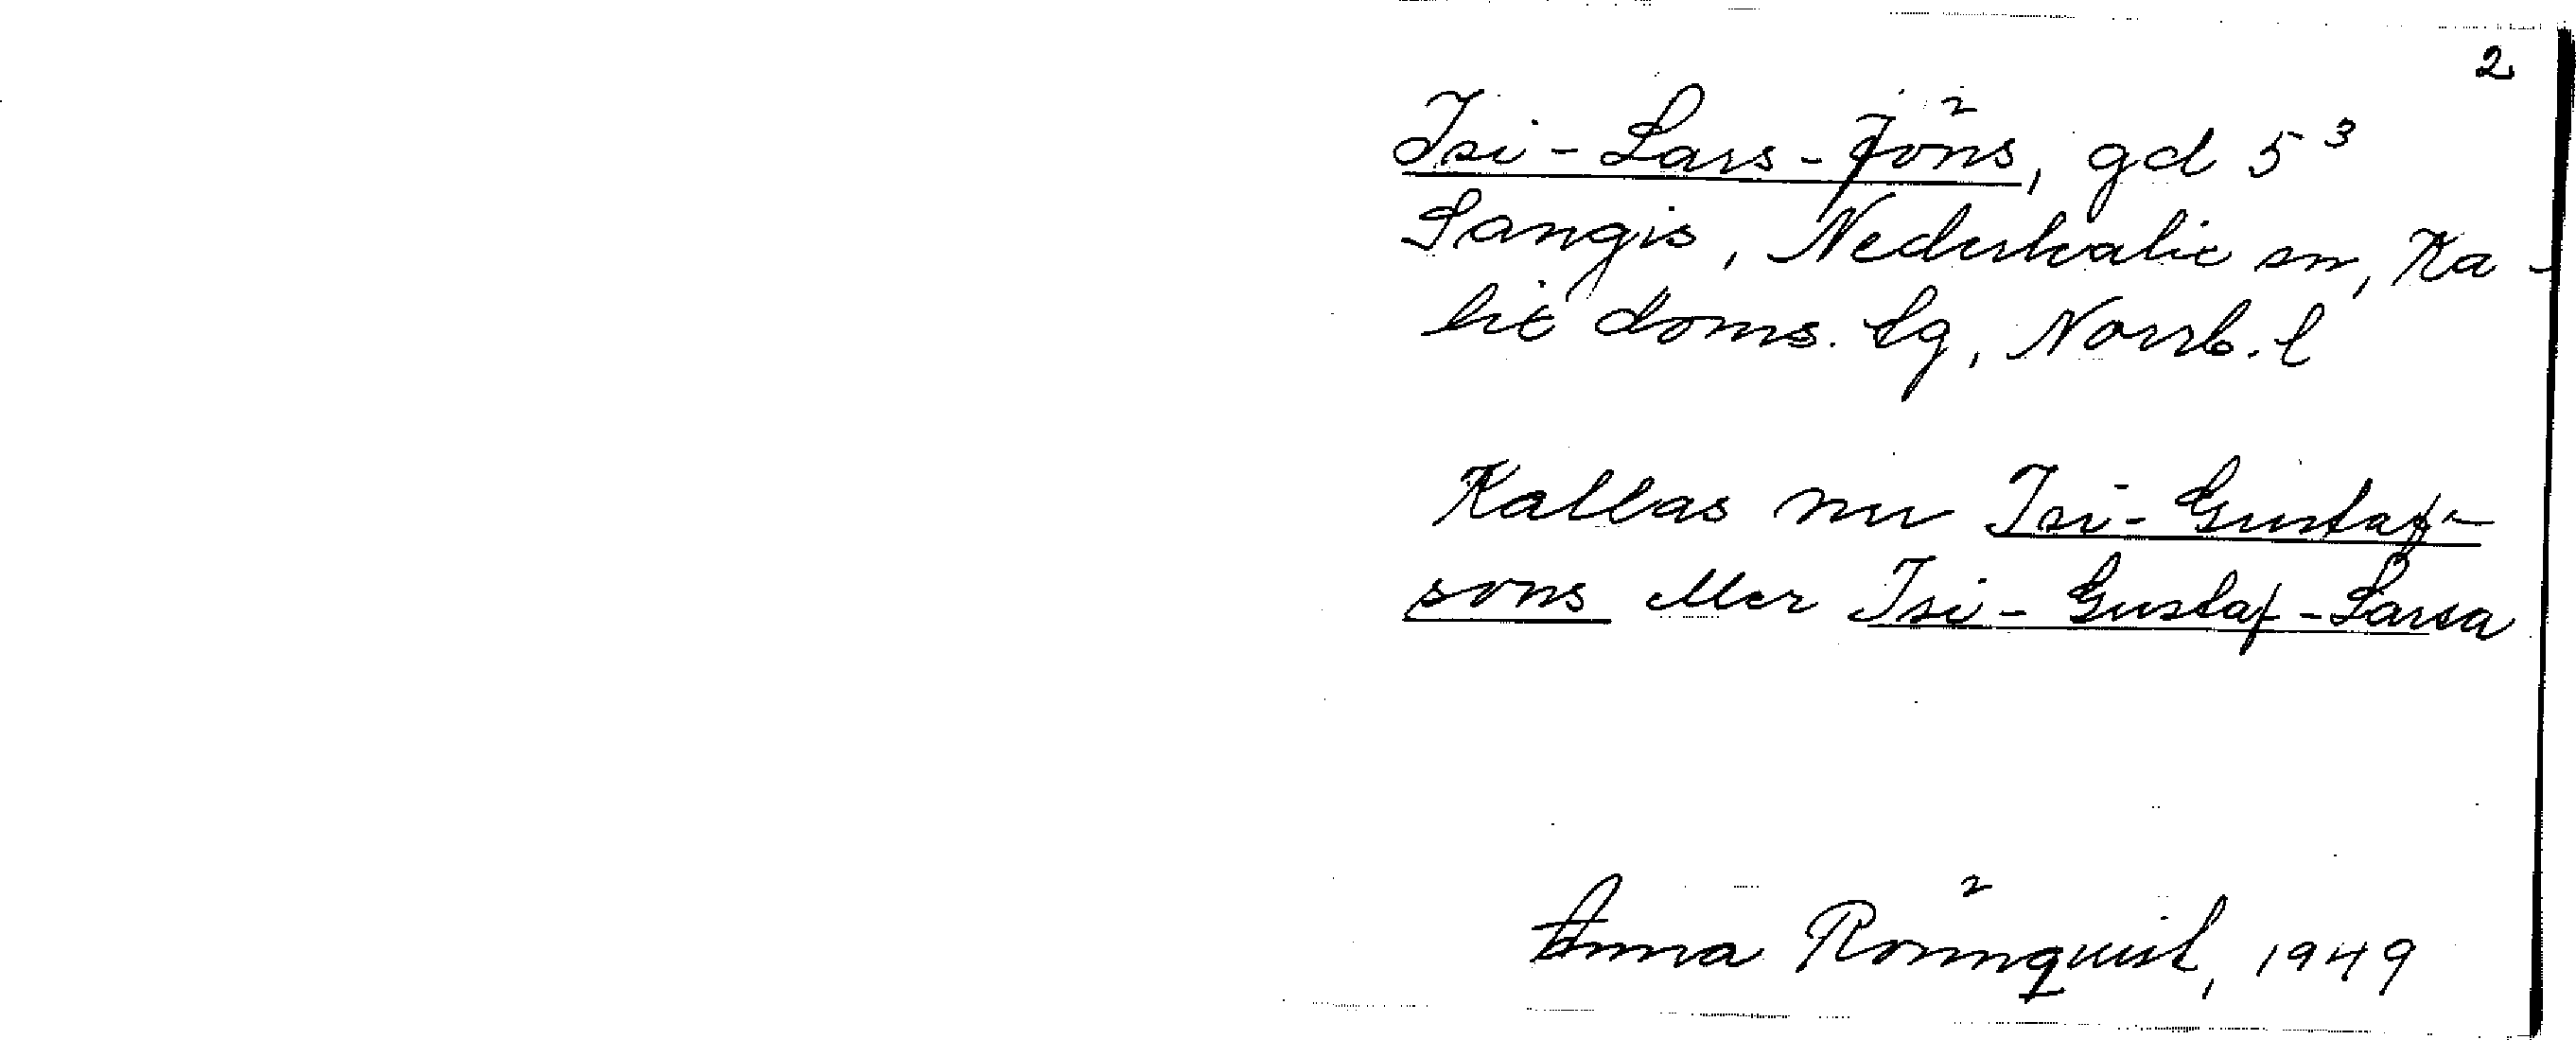 2
Isi-Lars-Jöns, gd 5³
Sangis, Nederkalix sn, Ka-
lix doms. lg, Norrb. l
Kallas nu Isi-Gustaf-
sons eller Isi-Gustaf-Larsa
Anna Rönnquist, 1949